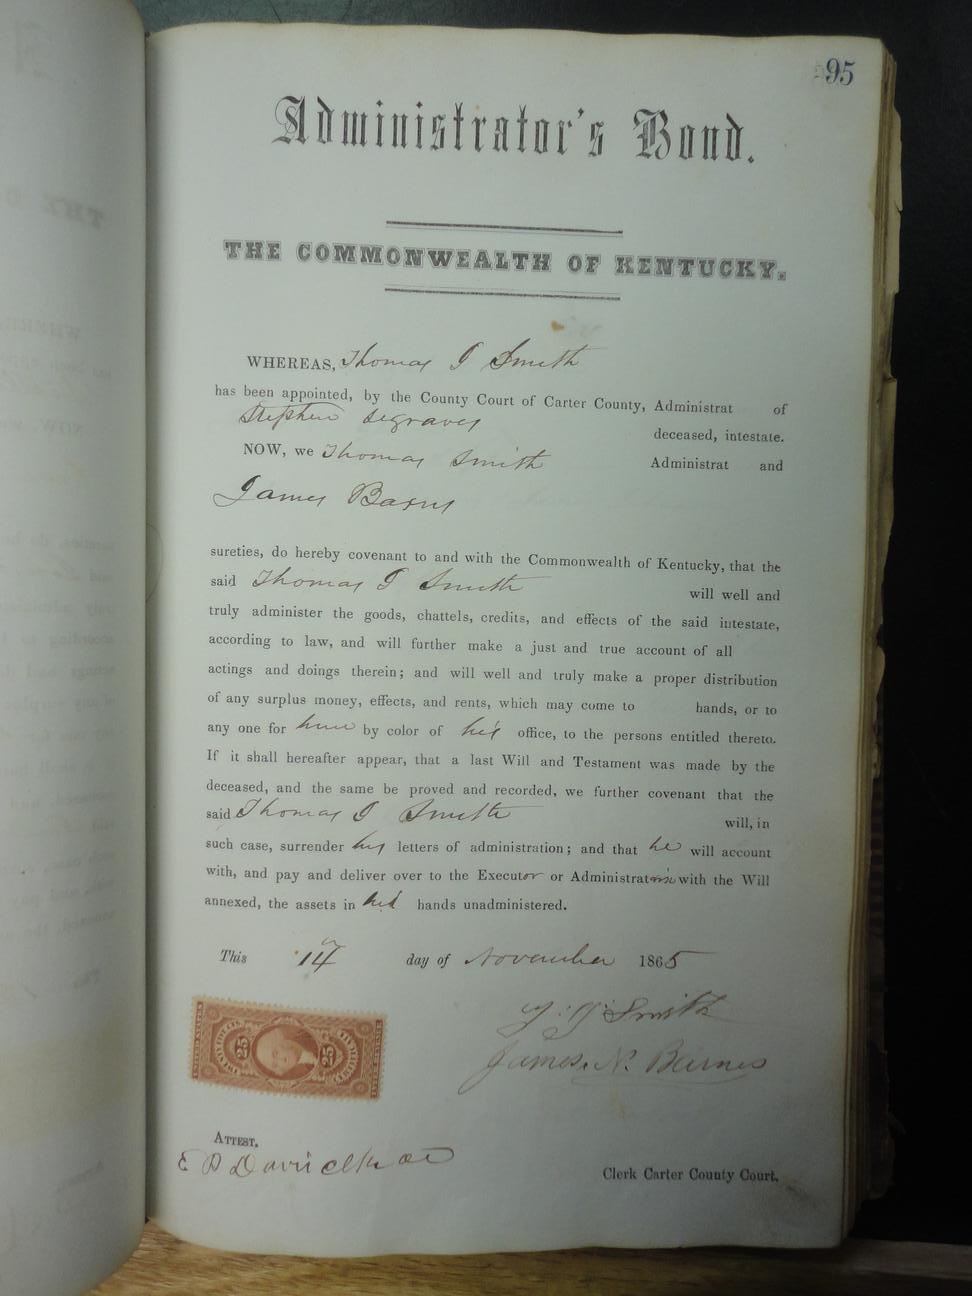 95
Administrator's Bond.
THE COMMONWEALTH OF KENTUCKY.
WHEREAS, Thomas J Smith
has been appointed, by the County Court of Carter County, Administrat of
Stephen Segraves
deceased, intestate.
NOW, we Thomas Smith Administrat and
James Barns
sureties, do hereby covenant to and with the Commonwealth of Kentucky, that the
said Thomas J Smith will well and
truly administer the goods, chattels, credits, and effects of the said intestate,
according to law, and will further make a just and true account of all
actings and doings therein; and will well and truly make a proper distribution
of any surplus money, effects, and rents, which may come to hands, or to
any one for him by color of his office, to the persons entitled thereto.
If it shall hereafter appear, that a last Will and Testament was made by the
deceased, and the same be proved and recorded, we further covenant that the
said Thomas J Smith will, in
such case, surrender his letters of administration; and that he will account
with, and pay and deliver over to the Executor or Administrator with the Will
annexed, the assets in his hands unadministered.
This 14 day of November 1865
T. J. Smith
James N. Barnes
25 25
ATTEST,
E D Davis
Clerk Carter County Court.